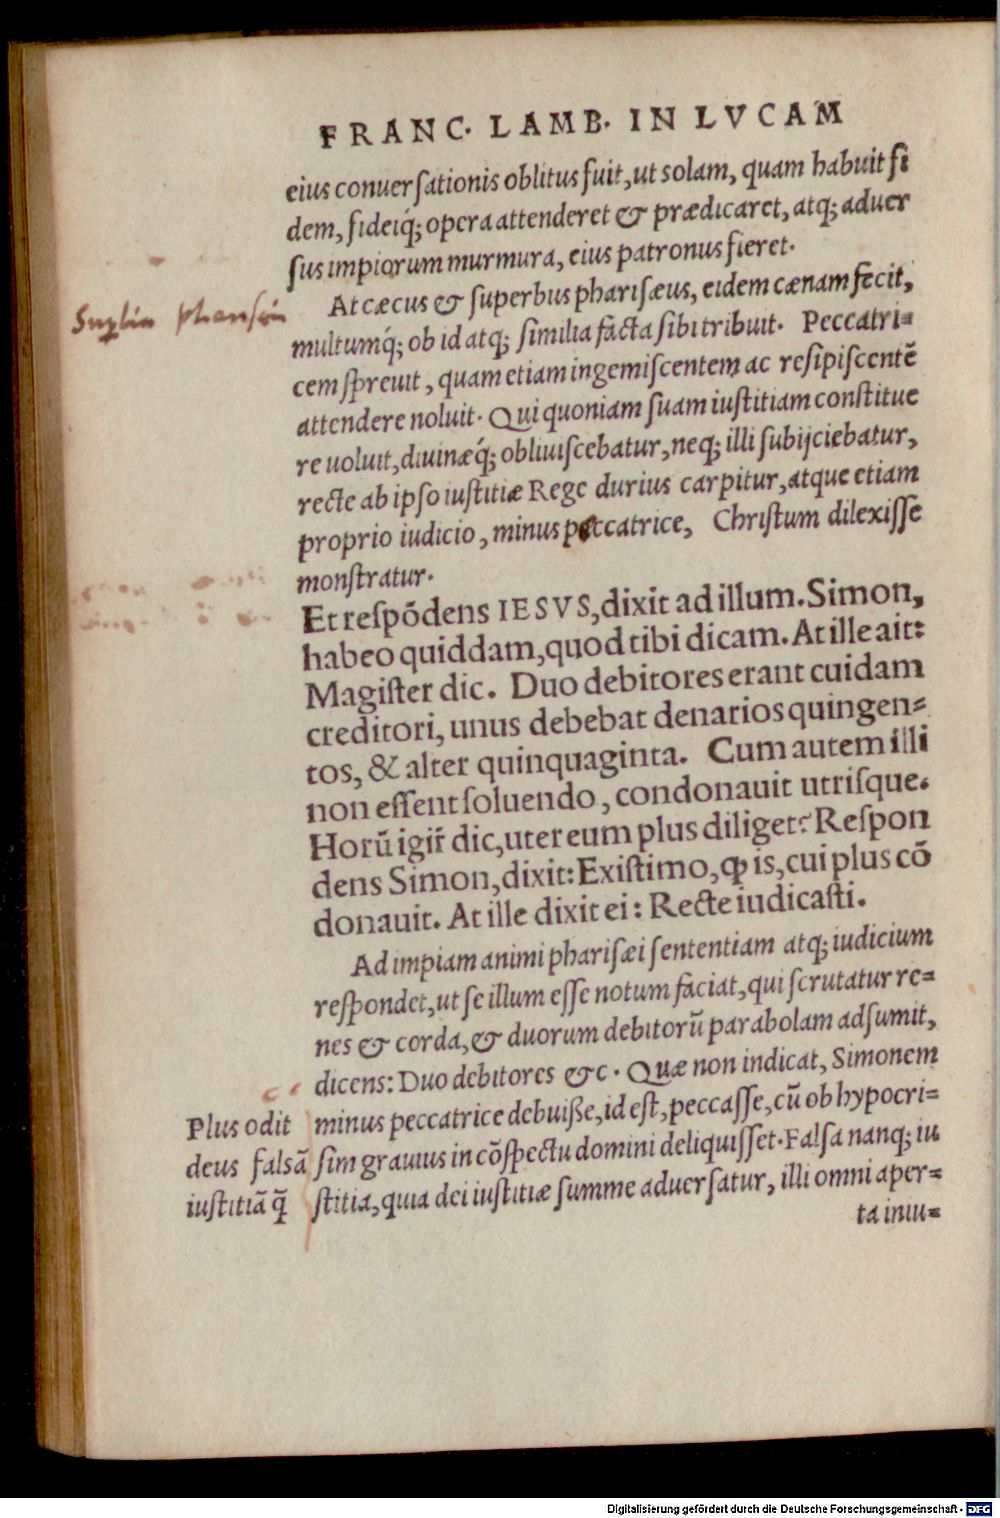 FRANC. LAMB. IN LVCAM
eius conuerſationis oblitus fuit, ut solam, quam habuit fi
dem, fideiq́; opera attenderet & prædicaret, atq; aduer
ſus impiorum murmura, eius patronus fieret.
At cæcus & ſuperbus phariſæus, eidem cænam fecit,
multumq́; ob id atq; ſimilia facta ſibi tribuit. Peccatri-
cem ſpreuit, quam etiam ingemiſcentem ac reſipiſcentē
attendere noluit. Qui quoniam ſuam iuſtitiam conſtitue
re uoluit, diuinæq́; obliuiſcebatur, neq; illi ſubijciebatur,
recte ab ipſo iuſtitiæ Rege durius carpitur, atque etiam
proprio iudicio, minus peccatrice, Chriſtum dilexiſſe
monſtratur.
Et reſpōdens IESVS, dixit ad illum. Simon,
habeo quiddam, quod tibi dicam. At ille ait:
Magiſter dic. Duo debitores erant cuidam
creditori, unus debebat denarios quingen-
tos, & alter quinquaginta. Cum autem illi
non eſſent ſoluendo, condonauit utriſque.
Horū igit̄ dic, uter eum plus diliget? Reſpon
dens Simon, dixit: Exiſtimo, ꝙ is, cui plus cō
donauit. At ille dixit ei: Recte iudicaſti.
Ad impiam animi phariſæi ſententiam atq; iudicium
reſpondet, ut ſe illum eſſe notum faciat, qui ſcrutatur re-
nes & corda, & duorum debitorū parabolam adſumit,
dicens: Duo debitores &c. Quæ non indicat, Simonem
minus peccatrice debuiße, id eſt, peccaſſe, cū ob hypocri-
ſim grauius in cōſpectu domini deliquiſſet. Falſa nanq; iu
ſtitia, quia dei iuſtitiæ ſumme aduerſatur, illi omni aper-
ta iniu-
Plus odit
deus falsā
iuſtitiā q̄̃
Digitalisierung gefördert durch die Deutsche Forschungsgemeinschaft - DFG